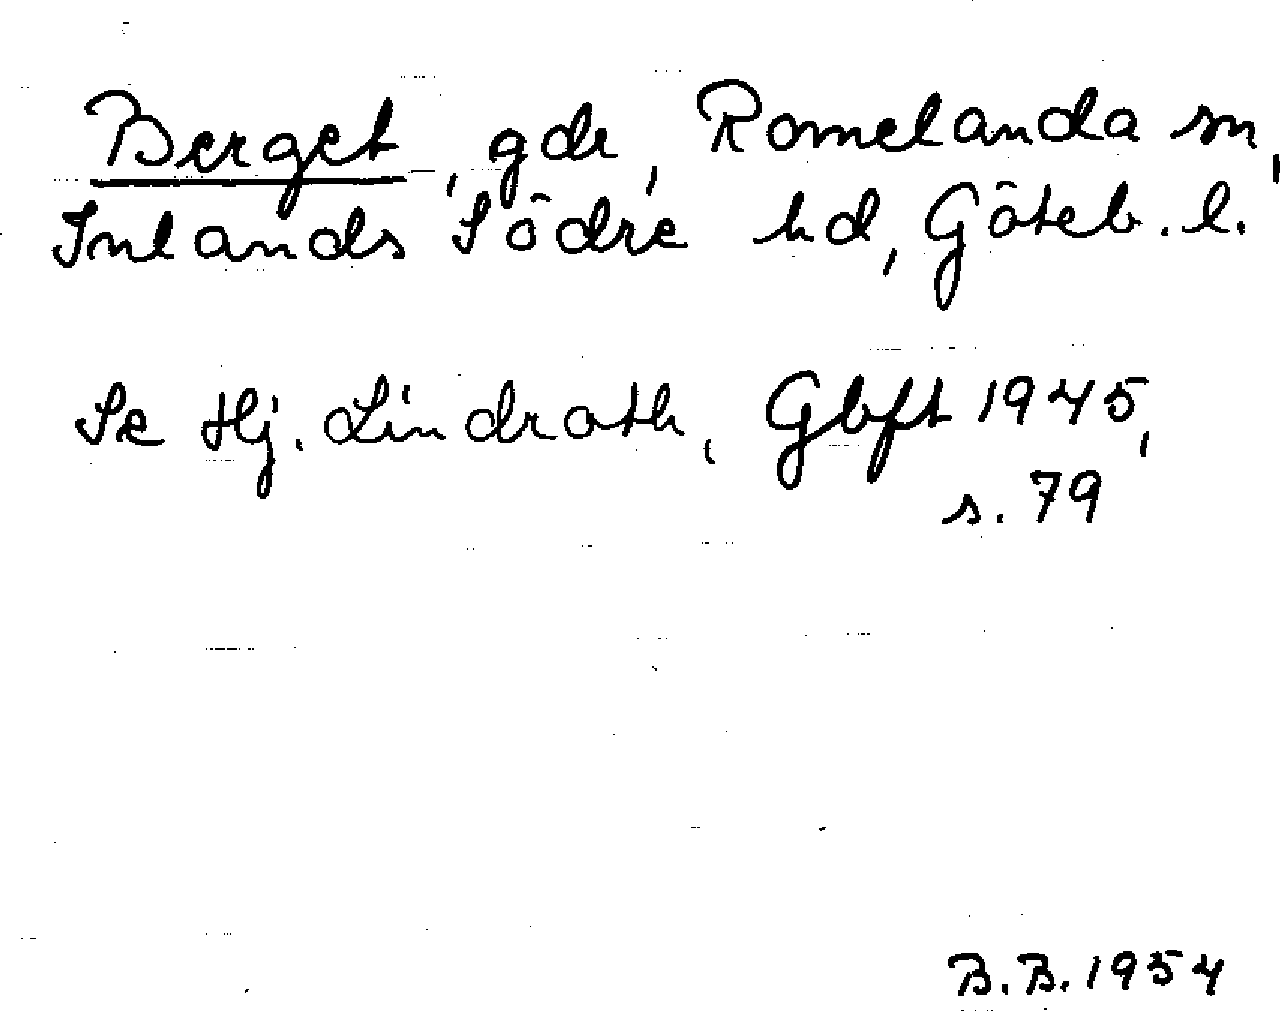 Berget, gdr, Romelanda sn,
Inlands Södre hd, Göteb. l.
Se Hj. Lindroth, Gbft 1945,
s. 79
B.B. 1954